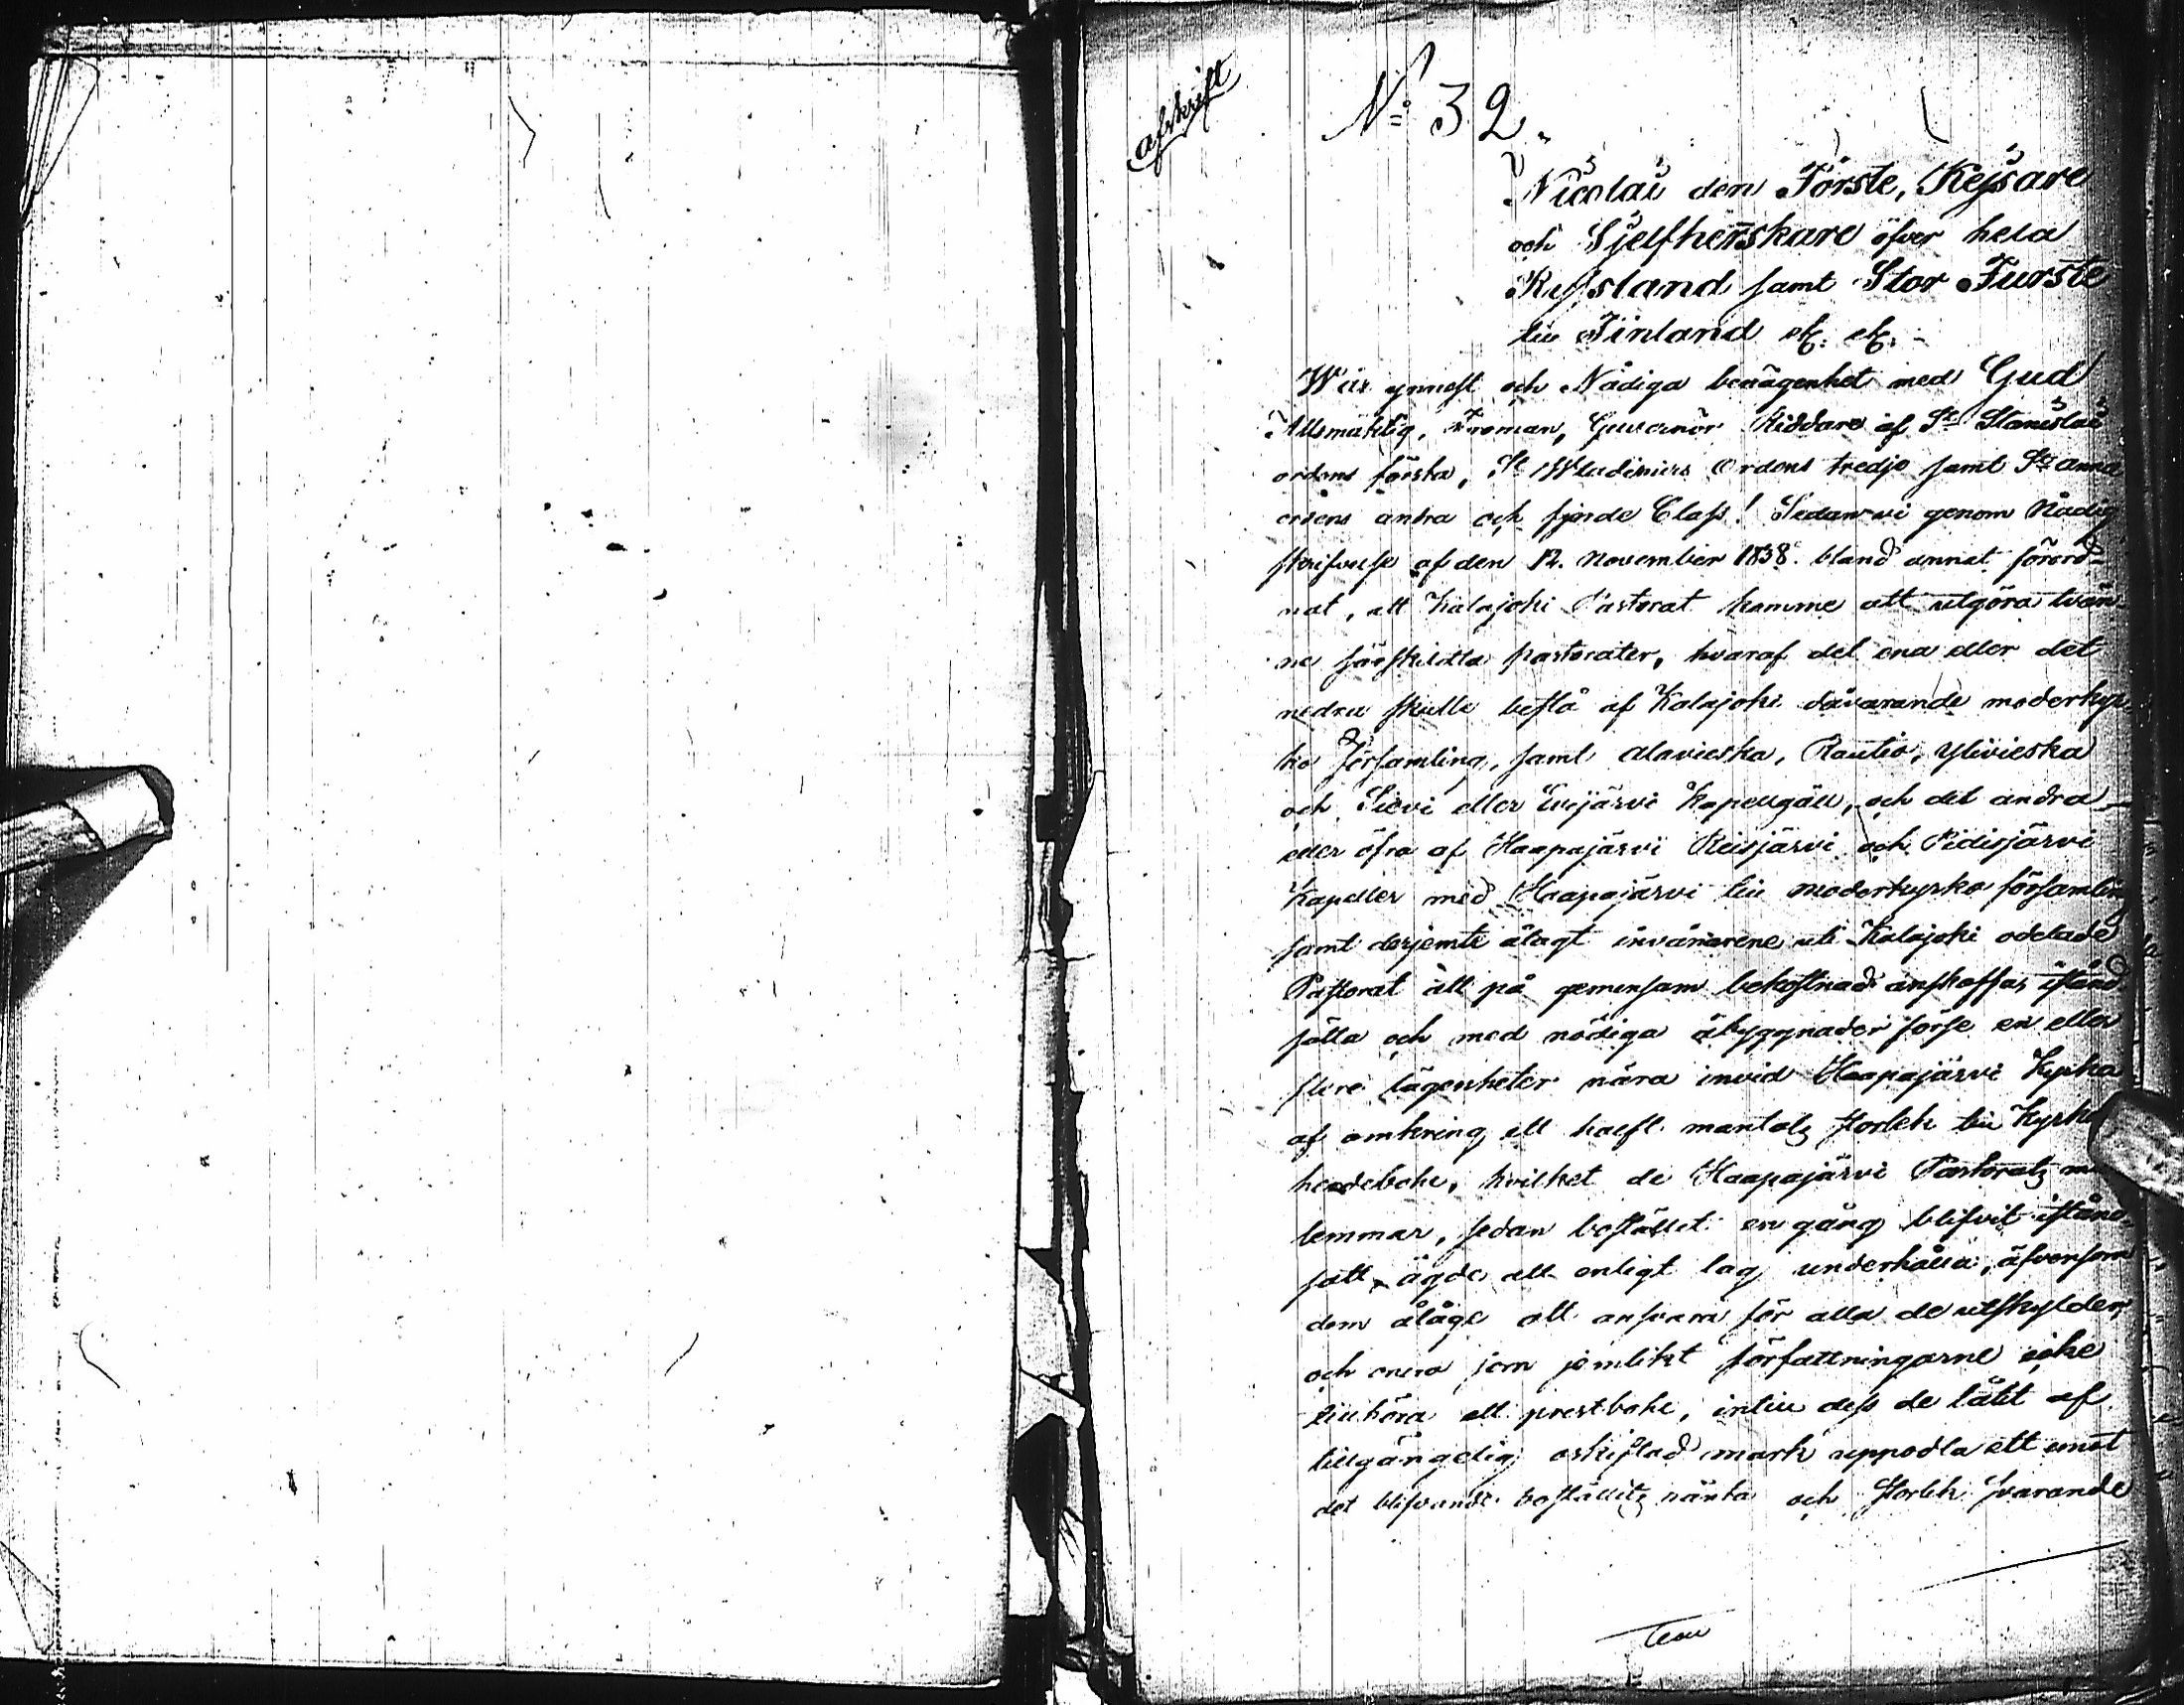 afskrift
No 32.
Nicolai den Förste, Kejsare
och Sjelfherrskare öfver hela
Ryssland samt Stor Furste
till Finland etc. etc.
Wår ynnest och Nådiga benägenhet med Gud
Allsmäktig, Troman, Guvernör Riddare af St Stanislai
ordens första, St Wladimirs Ordens tredje samt St Anna
ordens andra och fjerde Class! Sedan vi genom Nådig
skrifvelse af den 12. November 1838. bland annat förord-
nat, att Kalajoki Pastorat komme att utgöra tvän-
ne särskildta pastorater, hvaraf det ena eller det
nedra skulle bestå af Kalajoki dåvarande moderkyr-
ko Församling, samt Alavieska, Rautio, Ylivieska
och Sievi eller Evijärvi Kapellgäll, och det andra
eller öfra af Haapajärvi Reisjärvi och Pidisjärvi
Kapeller med Haapajärvi till moderkyrko församling
samt derjemte ålagt invånarene uti Kalajoki odelade
Pastorat att på gemensam bekostnad anskaffa, istånd
sätta och med nödiga åbyggnader förse en eller
flere lägenheter nära invid Haapajärvi Kyrka
af omkring ett halft mantals storlek till Kyrko
herdebohl, hvilket de Haapajärvi Pastorats
lemmar, sedan bostället en gång blifvit istånd-
satt, ägde att enligt lag underhålla, äfvensom
dem ålåge att ansvara för alla de utskylder,
och onera som jemlikt författningarne icke
tillhöra ett prestbohl, intill dess de låtit af
tillgängelig oskiftad mark uppodla ett emot
det blifvande boställets ränta och storlek svarande